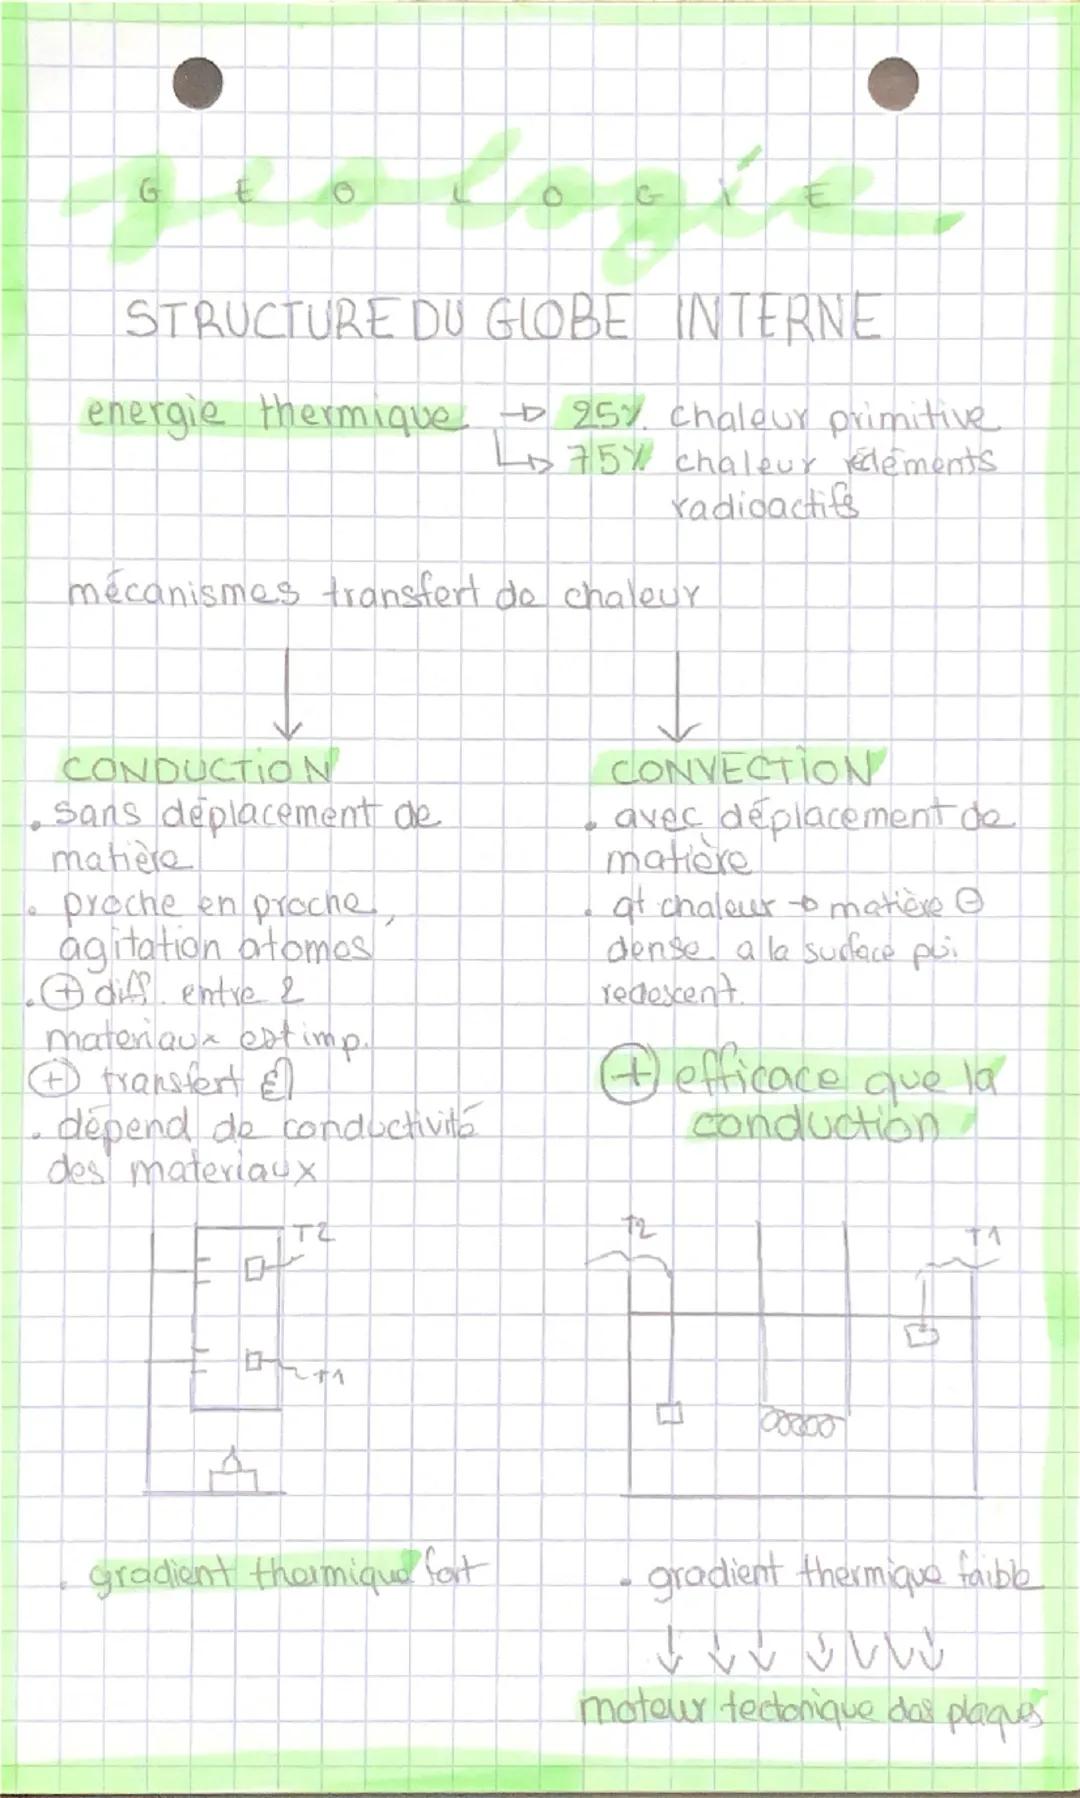 geologie
G E O L O G I E
STRUCTURE DU GLOBE INTERNE
energie thermique → 25% chaleur primitive
↳ 75% chaleur éléments
radioactifs
mécanismes transfert de chaleur
CONDUCTION
. sans déplacement de
matière
. proche en proche,
agitation atomes
. ⊕ diff. entre 2
materiaux est imp.
⊕ transfert
. dépend de conductivité
des materiaux
T2
T1
. gradient thermique fort
CONVECTION
. avec déplacement de
matière
. qt chaleur → matière ⊖
dense a la surface pui
redescent.
⊕ efficace que la
conduction
T2
T1
. gradient thermique faible
↓ ↓ ↓ ↓ ↓ ↓ ↓
moteur tectonique des plaques